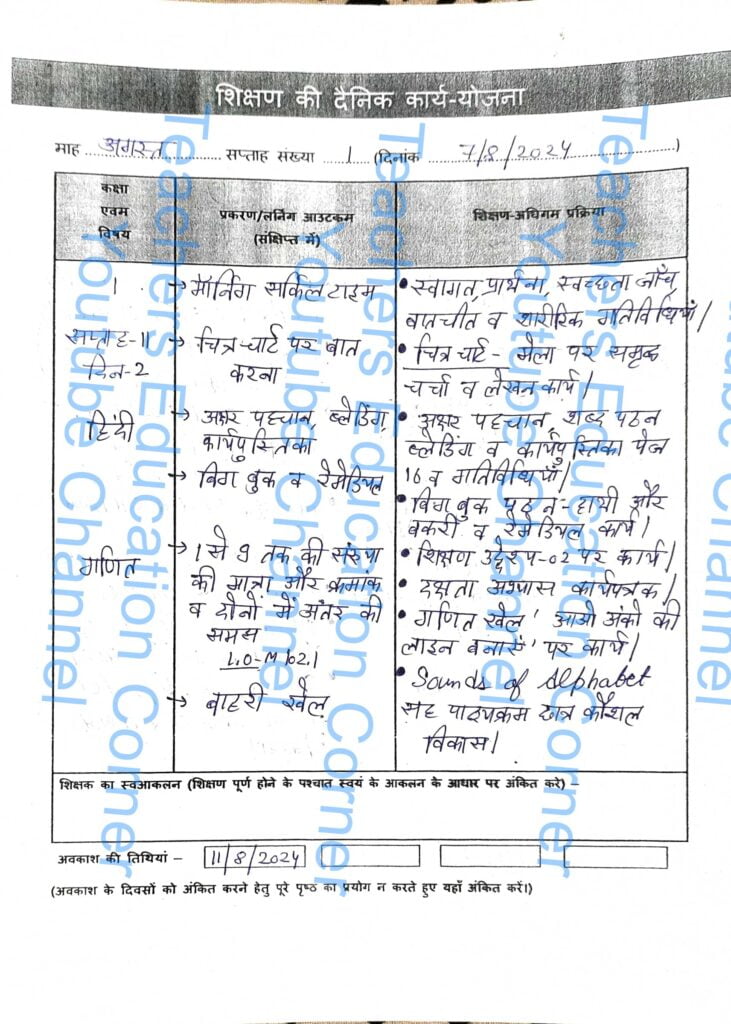 शिक्षण की दैनिक कार्य-योजना
माह अगस्त सप्ताह संख्या 1 (दिनांक 7/8/2024)
कक्षा
एवम
विषय
प्रकरण/लर्निंग आउटकम
(संक्षिप्त में)
शिक्षण-अधिगम प्रक्रिया
1
सप्ताह-11
दिन-2
हिंदी
गणित
→ मॉर्निंग सर्किल टाइम
→ चित्र-चार्ट पर बात
करना
→ अक्षर पहचान, ब्लेडिंग,
कार्यपुस्तिका
→ बिग बुक व रेमेडियल
→ 1 से 9 तक की संख्या
की मात्रा और क्रमांक
व दोनों में अंतर की
समझ
L.O-M 102.1
→ बाहरी खेल
• स्वागत, प्रार्थना, स्वच्छता जाँच,
बातचीत व शारीरिक गतिविधियाँ।
• चित्र चार्ट - मेला पर समृद्ध
चर्चा व लेखन कार्य।
• अक्षर पहचान, शब्द पठन
ब्लेडिंग व कार्यपुस्तिका पेज
16 व गतिविधियाँ।
• बिग बुक पठन - हाथी और
बकरी व रेमेडियल कार्य।
• शिक्षण उद्देश्य-02 पर कार्य।
• दक्षता अभ्यास कार्यपत्रक।
• गणित खेल 'आओ अंकों की
लाइन बनाएं' पर कार्य।
• Sounds of Alphabet
सह पाठ्यक्रम छात्र कौशल
विकास।
शिक्षक का स्वआकलन (शिक्षण पूर्ण होने के पश्चात स्वयं के आकलन के आधार पर अंकित करे) –
अवकाश की तिथियां – 11/8/2024
(अवकाश के दिवसों को अंकित करने हेतु पूरे पृष्ठ का प्रयोग न करते हुए यहाँ अंकित करें।)
Teachers Education Corner
Youtube Channel
Teachers Education Corner
Youtube Channel
Teachers Education Corner
Youtube Channel